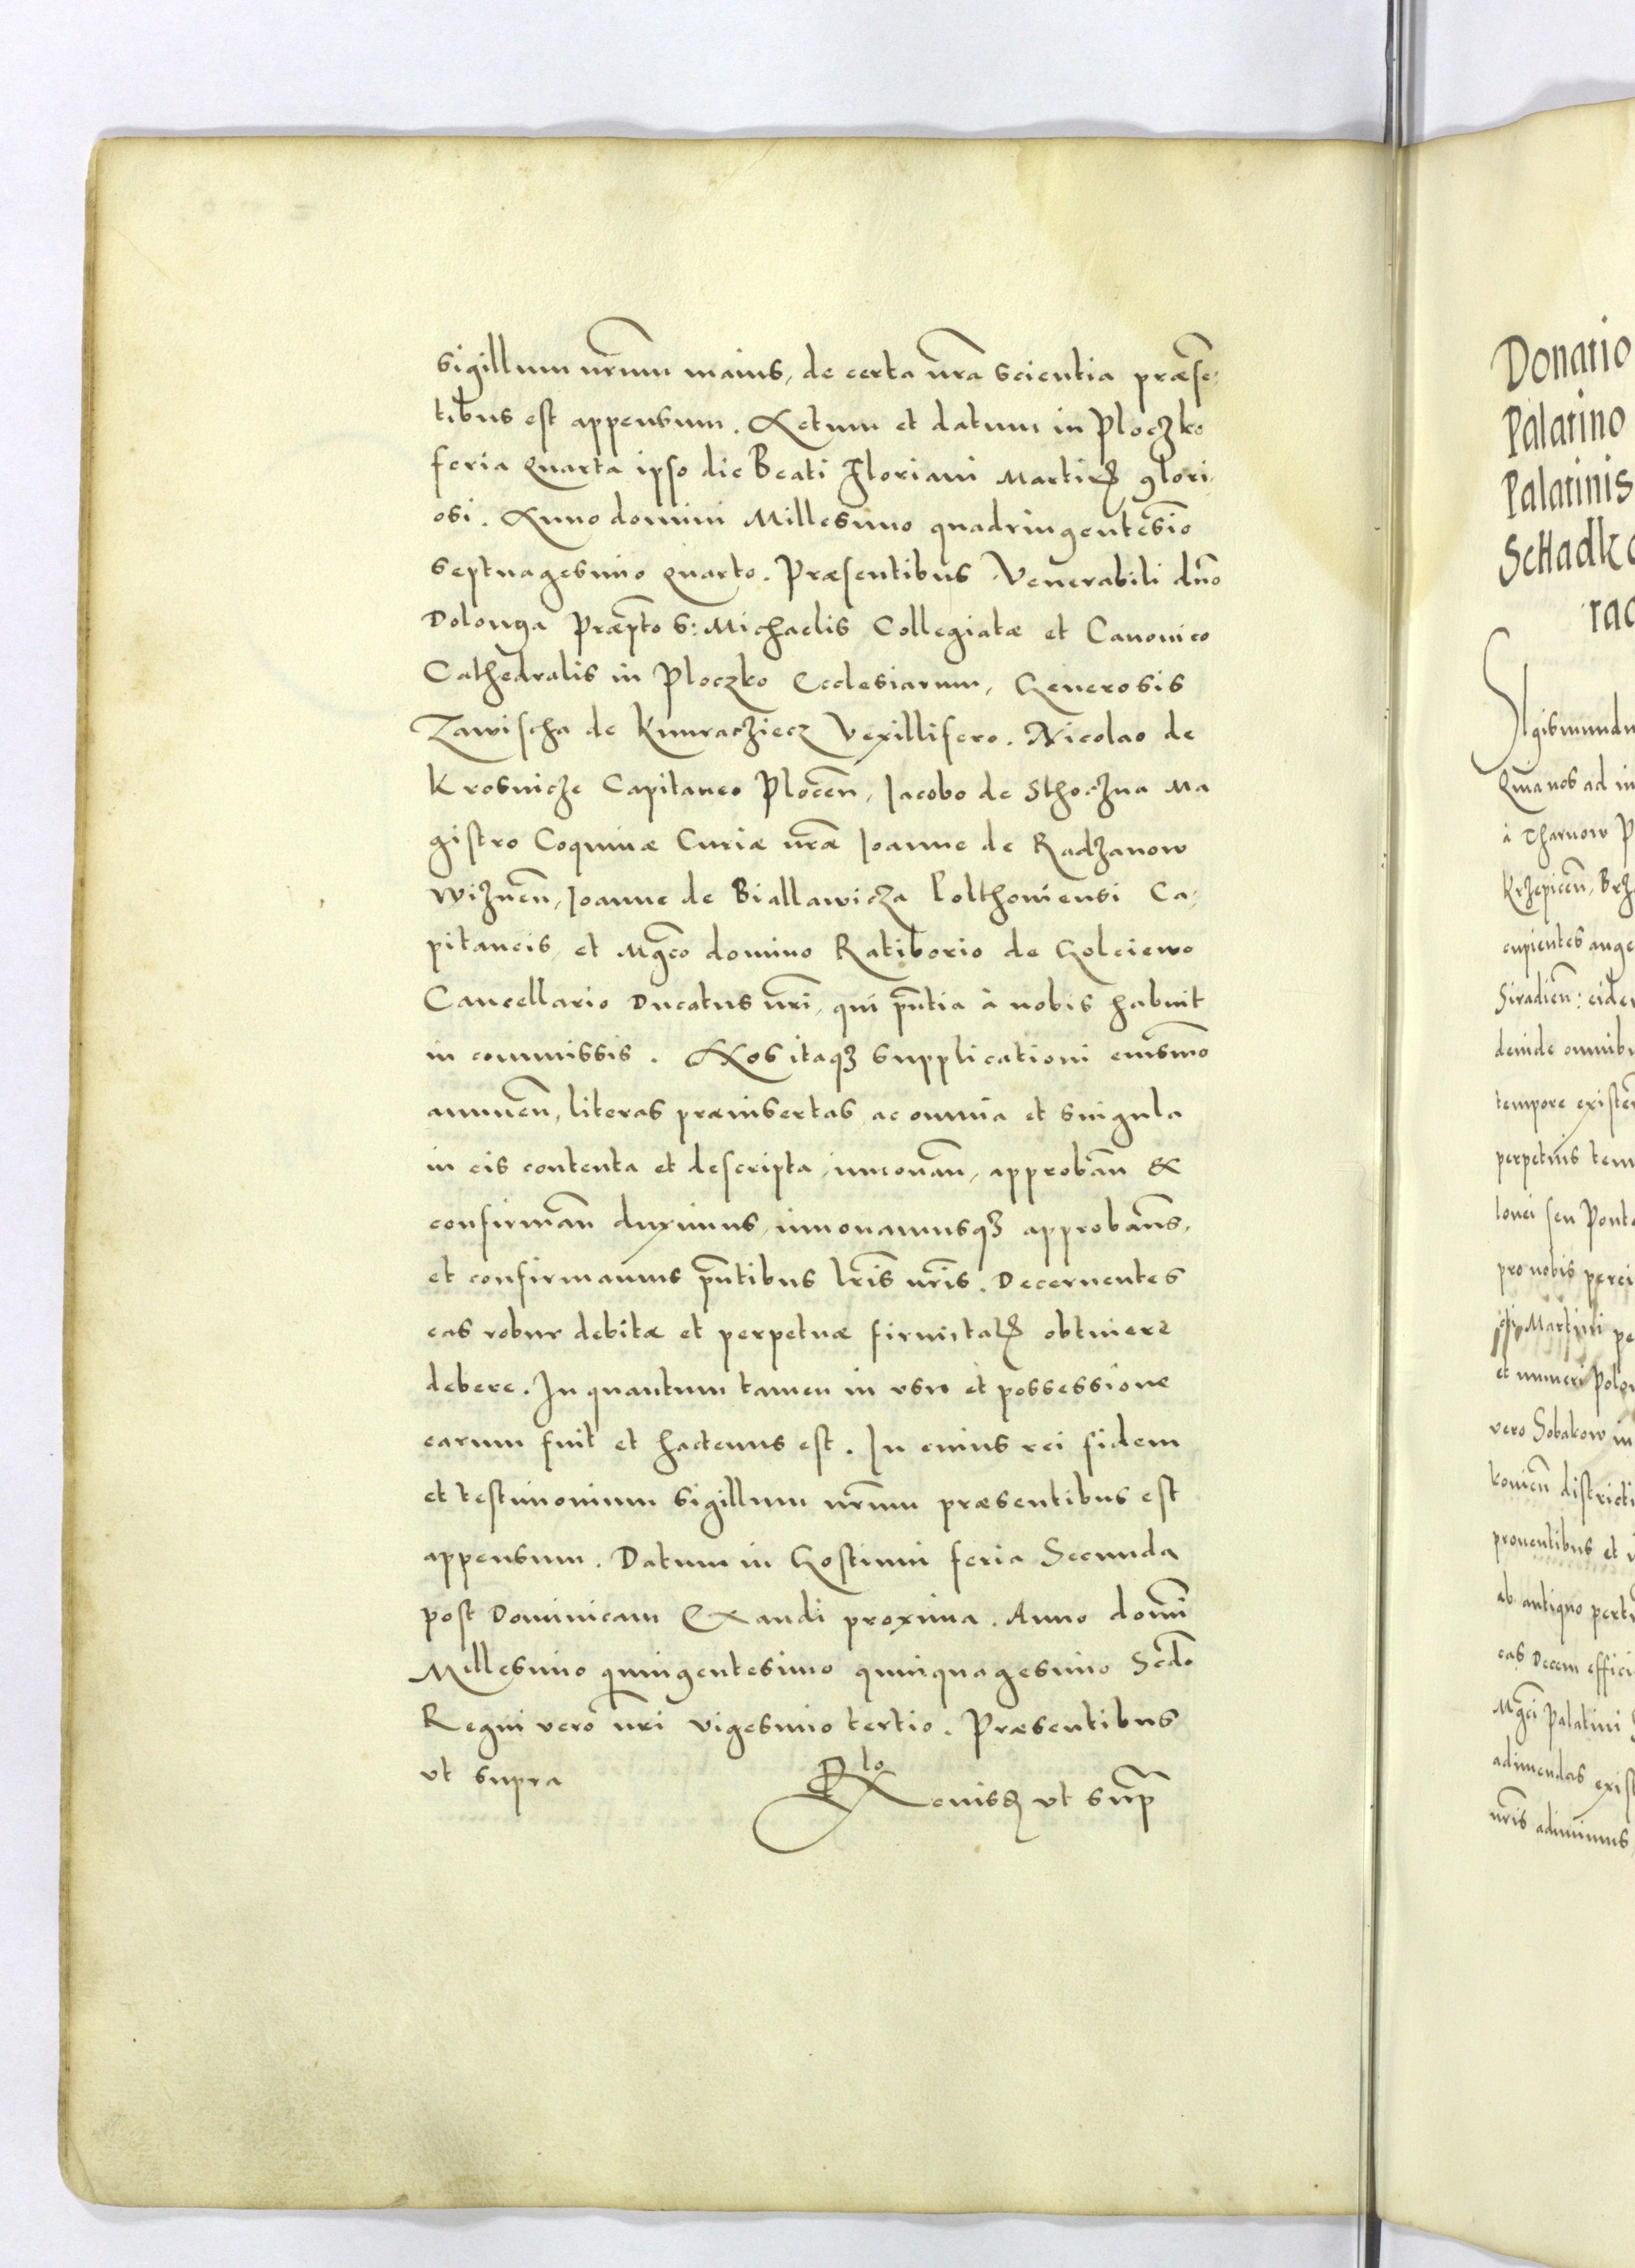 sigillum nr̃um maius, de certa nr̃a scientia præsẽ-
tibus est appensum. Actum et datum in Ploczko
feria quarta ipso die Beati Floriani Martirꝭ glori-
osi. Anno domini Millesimo quadringentesĩo
septuagesimo quarto. Præsentibus Venerabili dño
Dolonga Præpto S: Michaelis Collegiatæ et Canonico
Cathedralis in Ploczko Ecclesiarum, Generosis
Zawischa de Kunracziecz Vexillifero. Nicolao de
Krosnicze Capitaneo Plocẽn, Jacobo de Sthoczna Ma
gistro Coquinæ Curiæ nr̃æ Joanne de Radzanow
Wiznẽn, Joanne de Biallawicza Polthoviensi Ca-
pitaneis, et Mgc̃o domino Ratiborio de Golciewo
Cancellario Ducatus nr̃i, qui pñtia à nobis habuit
in commissis. Nos itaqꝫ supplicationi eiusmo
annuẽn, literas præinsertas ac omnia et singula
in eis contenta et descripta, innouãn, approbãn &
confirmãn duximus, innouamusqꝫ approbam̃s,
et confirmamus pñtibus lr̃is nr̃is. Decernentes
eas robur debitæ et perpetuæ firmitatꝭ obtinere
debere. In quantum tamen in vsu et possessione
earum fuit et hactenus est. In cuius rei fidem
et testimonium sigillum nr̃um præsentibus est
appensum. Datum in Gostinin feria Secunda
post Dominicam Exaudi proxima. Anno domĩ
Millesimo quingentesimo quinquagesimo Scd̃o
Regni verò nr̃i vigesimo tertio. Præsentibus
vt supra
Rlo euisꝭ vt sup̃
Donatio
Palatino
Palatinis
Schadko
rad
SIgismundu
Quia nos ad in
à Tharnow P
Krzepicẽn, Brz
cupientes auge
Siradiẽn: eide
deinde omnibu
tempore existẽ
perpetuis tem
lonei seu Ponta
pro nobis perci
sti Martini pe
et numeri Polon
vero Sobakow in
koniẽn districti
prouentibus et v
ab antiquo pertĩ
eas Decem effici
Mgc̃i Palatini
adimendas exist
nr̃is adimimus